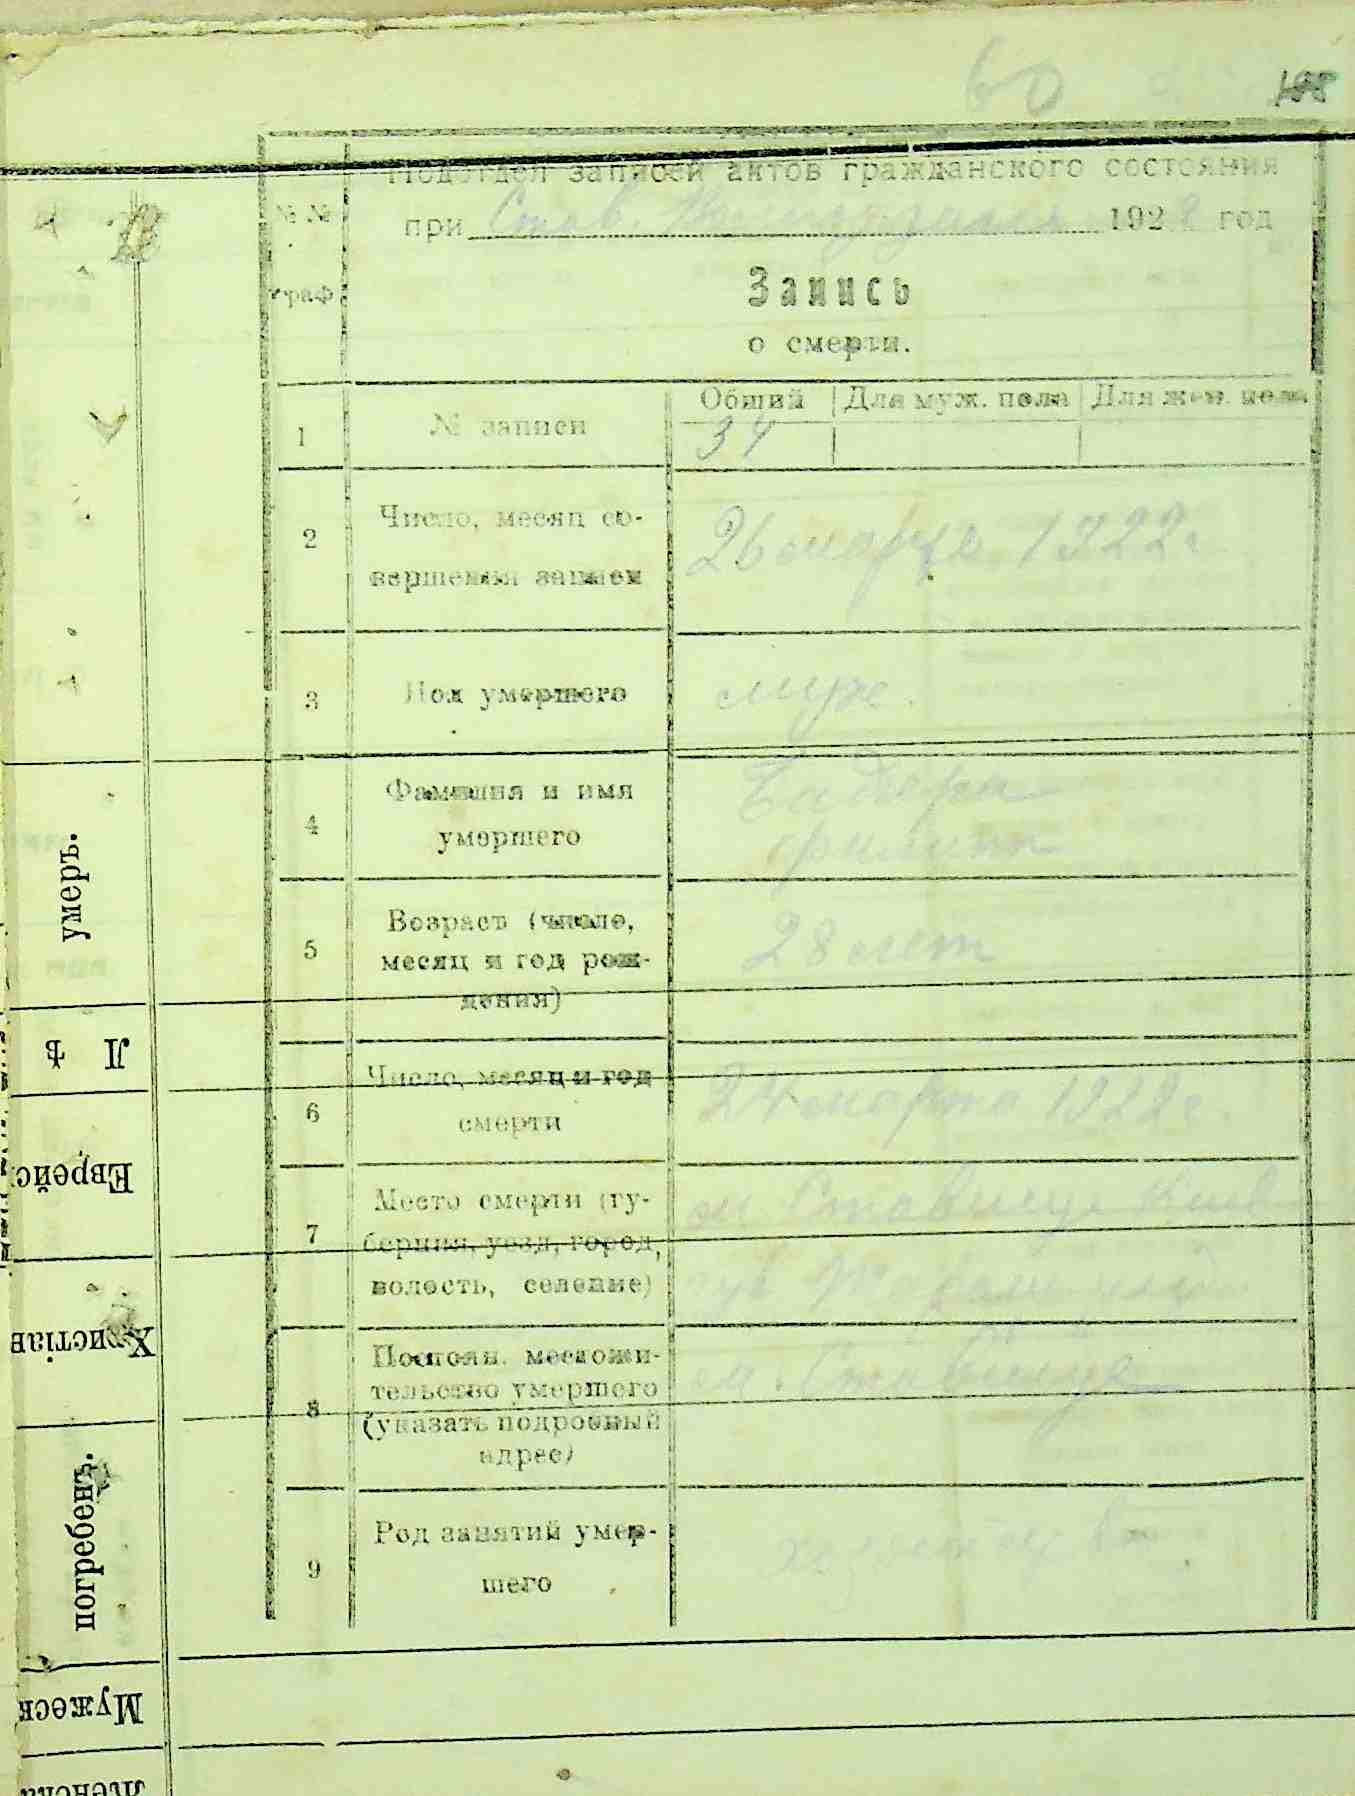 60
Подотдел записей актов гражданского состояния
при Став. 1922 год
№ №
граф.
Запись
о смерти.
Общий Для муж. пола Для жен. пола
1 № записи 34
2 Число, месяц со-
вершения записи 26 марта 1922 г
3 Пол умершего муж.
4 Фамилия и имя
умершего
5 Возраст (число,
месяц и год рож-
дения) 28 лет
6 Число, месяц и год
смерти 24 марта 1922 г
7 Место смерти (гу-
берния, уезд, город,
волость, селение) м. Ставище Киев
губ
8 Постоян. местожи-
тельство умершего
(указать подробный
адрес) м. Ставище
9 Род занятий умер-
шего
умеръ.
Л ѣ
Еврейс
Христіан
погребенъ.
Мужеск
Женск